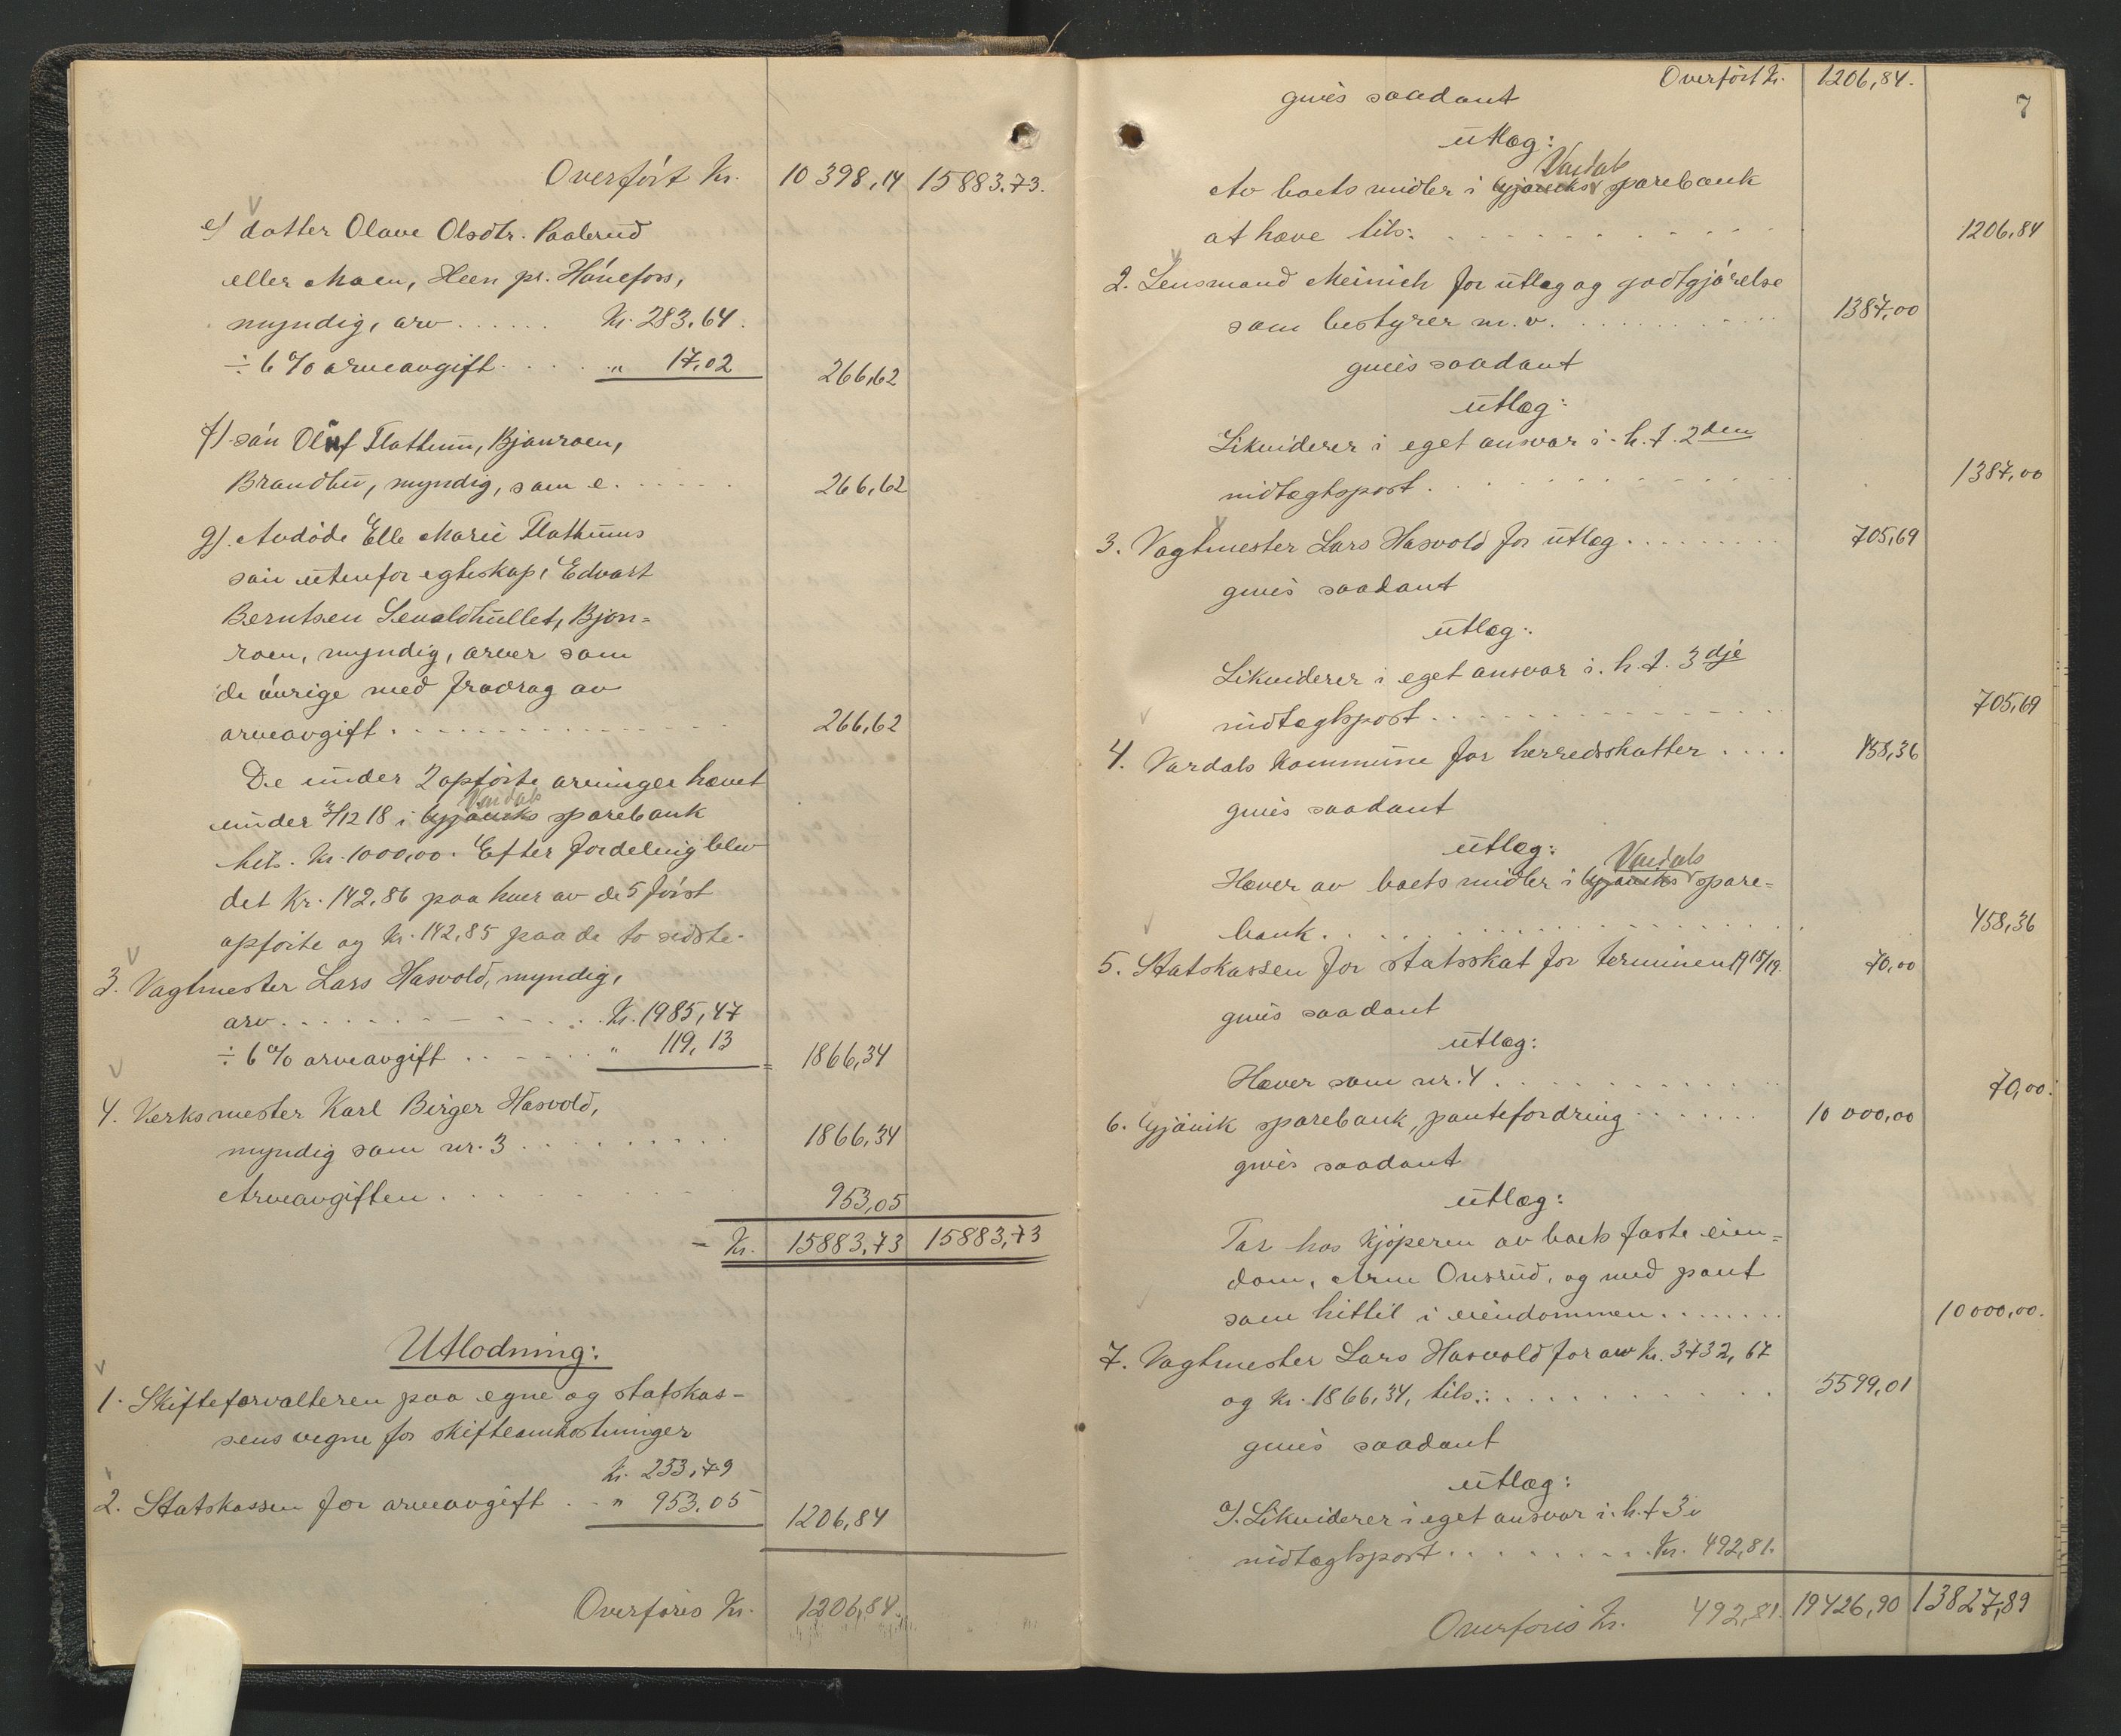 Overført Kr. 10398,14 15883.73.
e) datter Olave Olsdtr. Paalerud
eller Moen, Heen pr. Hønefoss,
myndig, arv...... Kr. 283,64.
÷ 6 % arveavgift..... " 17,02 266,62
f) søn Oluf Flathum, Bjønroen,
Brandbu, myndig, som e...... 266,62
g). Avdøde Elle Marie Flathums
søn utenfor egteskap, Edvart
Berntsen Sevaldhullet, Bjøn=
roen, myndig, arver som
de øvrige med fradrag av
arveavgift............. 266,62
De under 2 opførte arvinger hævet
Vardals
under 3/12 18 i Gjøviks sparebank
tils. Kr. 1000,00. Efter fordeling blev
det Kr. 142,86 paa hver av de 5 først
opførte og Kr. 142,85 paa de to sidste.
3. Vagtmester Lars Hasvold, myndig,
arv............. Kr. 1985,47
÷ 6 % arveavgift....... " 119,13 = 1866,34
4. Verksmester Karl Birger Hasvold,
myndig som nr. 3......... 1866,34
Arveavgiften........... 953,05
- Kr. 15883,73 15883,73
Utlodning:
1. Skifteforvalteren paa egne og statskas-
sens vegne for skifteomkostninger
Kr. 253,79
2. Statskassen for arveavgift.. " 953.05 1206,84
Overføres Kr. 1206,84.
Overført Kr. 1206,84.
7
gives saadant
utlæg:
Vardals
Av boets midler i Gjøviks sparebank
at hæve tils:............ 1206,84
2. Lensmand Meinich for utlæg og godtgjørelse
som bestyrer m.v........... 1387,00
gives saadant
utlæg:
Likviderer i eget ansvar i. h. t. 2den
indtægtspost............. 1387,00
3. Vagtmester Lars Hasvold for utlæg......... 705,69
gives saadant
utlæg:
Likviderer i eget ansvar i. h. t. 3dje
indtægtspost............. 705,69
4. Vardals kommune for herredsskatter.... 458,36
gives saadant
utlæg:
Vardals
Hæver av boets midler i Gjøviks spare=
bank............. 458,36
5. Statskassen for statsskat for terminen 1918/19. 70,00
gives saadant
utlæg:
Hæver som nr. 4............ 70,00.
6. Gjøvik sparebank, pantefordring....... 10 000,00
gives saadant
utlæg:
Tar hos kjøperen av boets faste eien=
dom, Arne Onsrud, og med pant
som hittil i eiendommen....... 10000,00.
7. Vagtmester Lars Hasvold for arv Kr. 3732,67
og Kr. 1866,34, tils:.......... 5599,01
gives saadant
utlæg:
a). Likviderer i eget ansvar i. h. t. 3
indtægtspost......... Kr. 492,81.
Overføres Kr. 492,81. 19426,90 13827,89